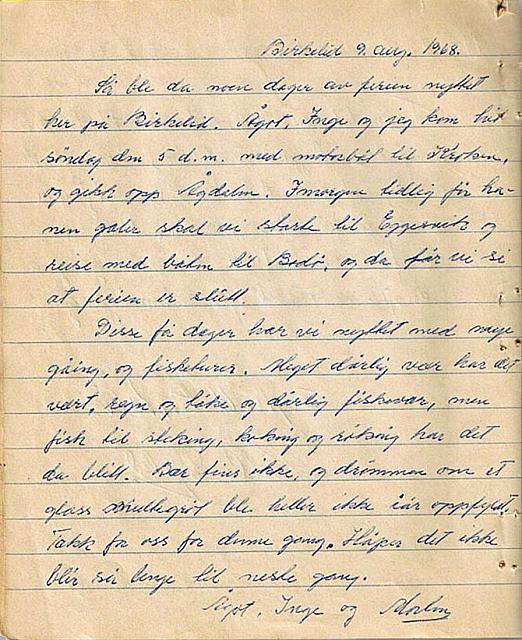 Birkelid 9. aug. 1968.
Så ble da noen dager av ferien nyttet
her på Birkelid. Ågot, Inge og jeg kom hit
søndag den 5 d.m. med motorbåt til Kroken,
og gikk opp Ågdalen. Imorgen tidlig før ha-
nen galer skal vi starte til Eggesvik og
reise med båten til Bodø, og da får vi si
at ferien er slutt.
Disse få dager har vi nyttet med mye
gåing, og fisketurer. Meget dårlig vær har det
vært, regn og tåke og dårlig fiskevær, men
fisk til steking, koking og røking har det
da blitt. Bær fins ikke, og drømmen om et
glass multegrøt ble heller ikke iår oppfylt.
Takk for oss for denne gang. Håper det ikke
blir så lenge til neste gang.
Ågot, Inge og